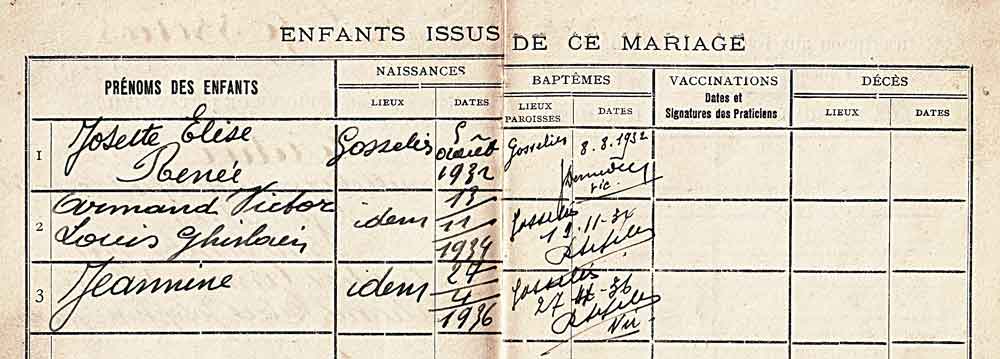 ENFANTS ISSUS DE CE MARIAGE
PRÉNOMS DES ENFANTS
NAISSANCES
LIEUX
DATES
BAPTÊMES
LIEUX
PAROISSES
DATES
VACCINATIONS
Dates et
Signatures des Praticiens
DÉCÈS
LIEUX
DATES
1
Josette Elise
Renée
Gosselies
5
août
1932
Gosselies
8.8.1932
vic.
2
Armand Victor
Louis Ghislain
idem
13
11
1934
Gosselies
19-11-34
3
Jeannine
idem
27
4
1936
Gosselies
27
36
Vic.